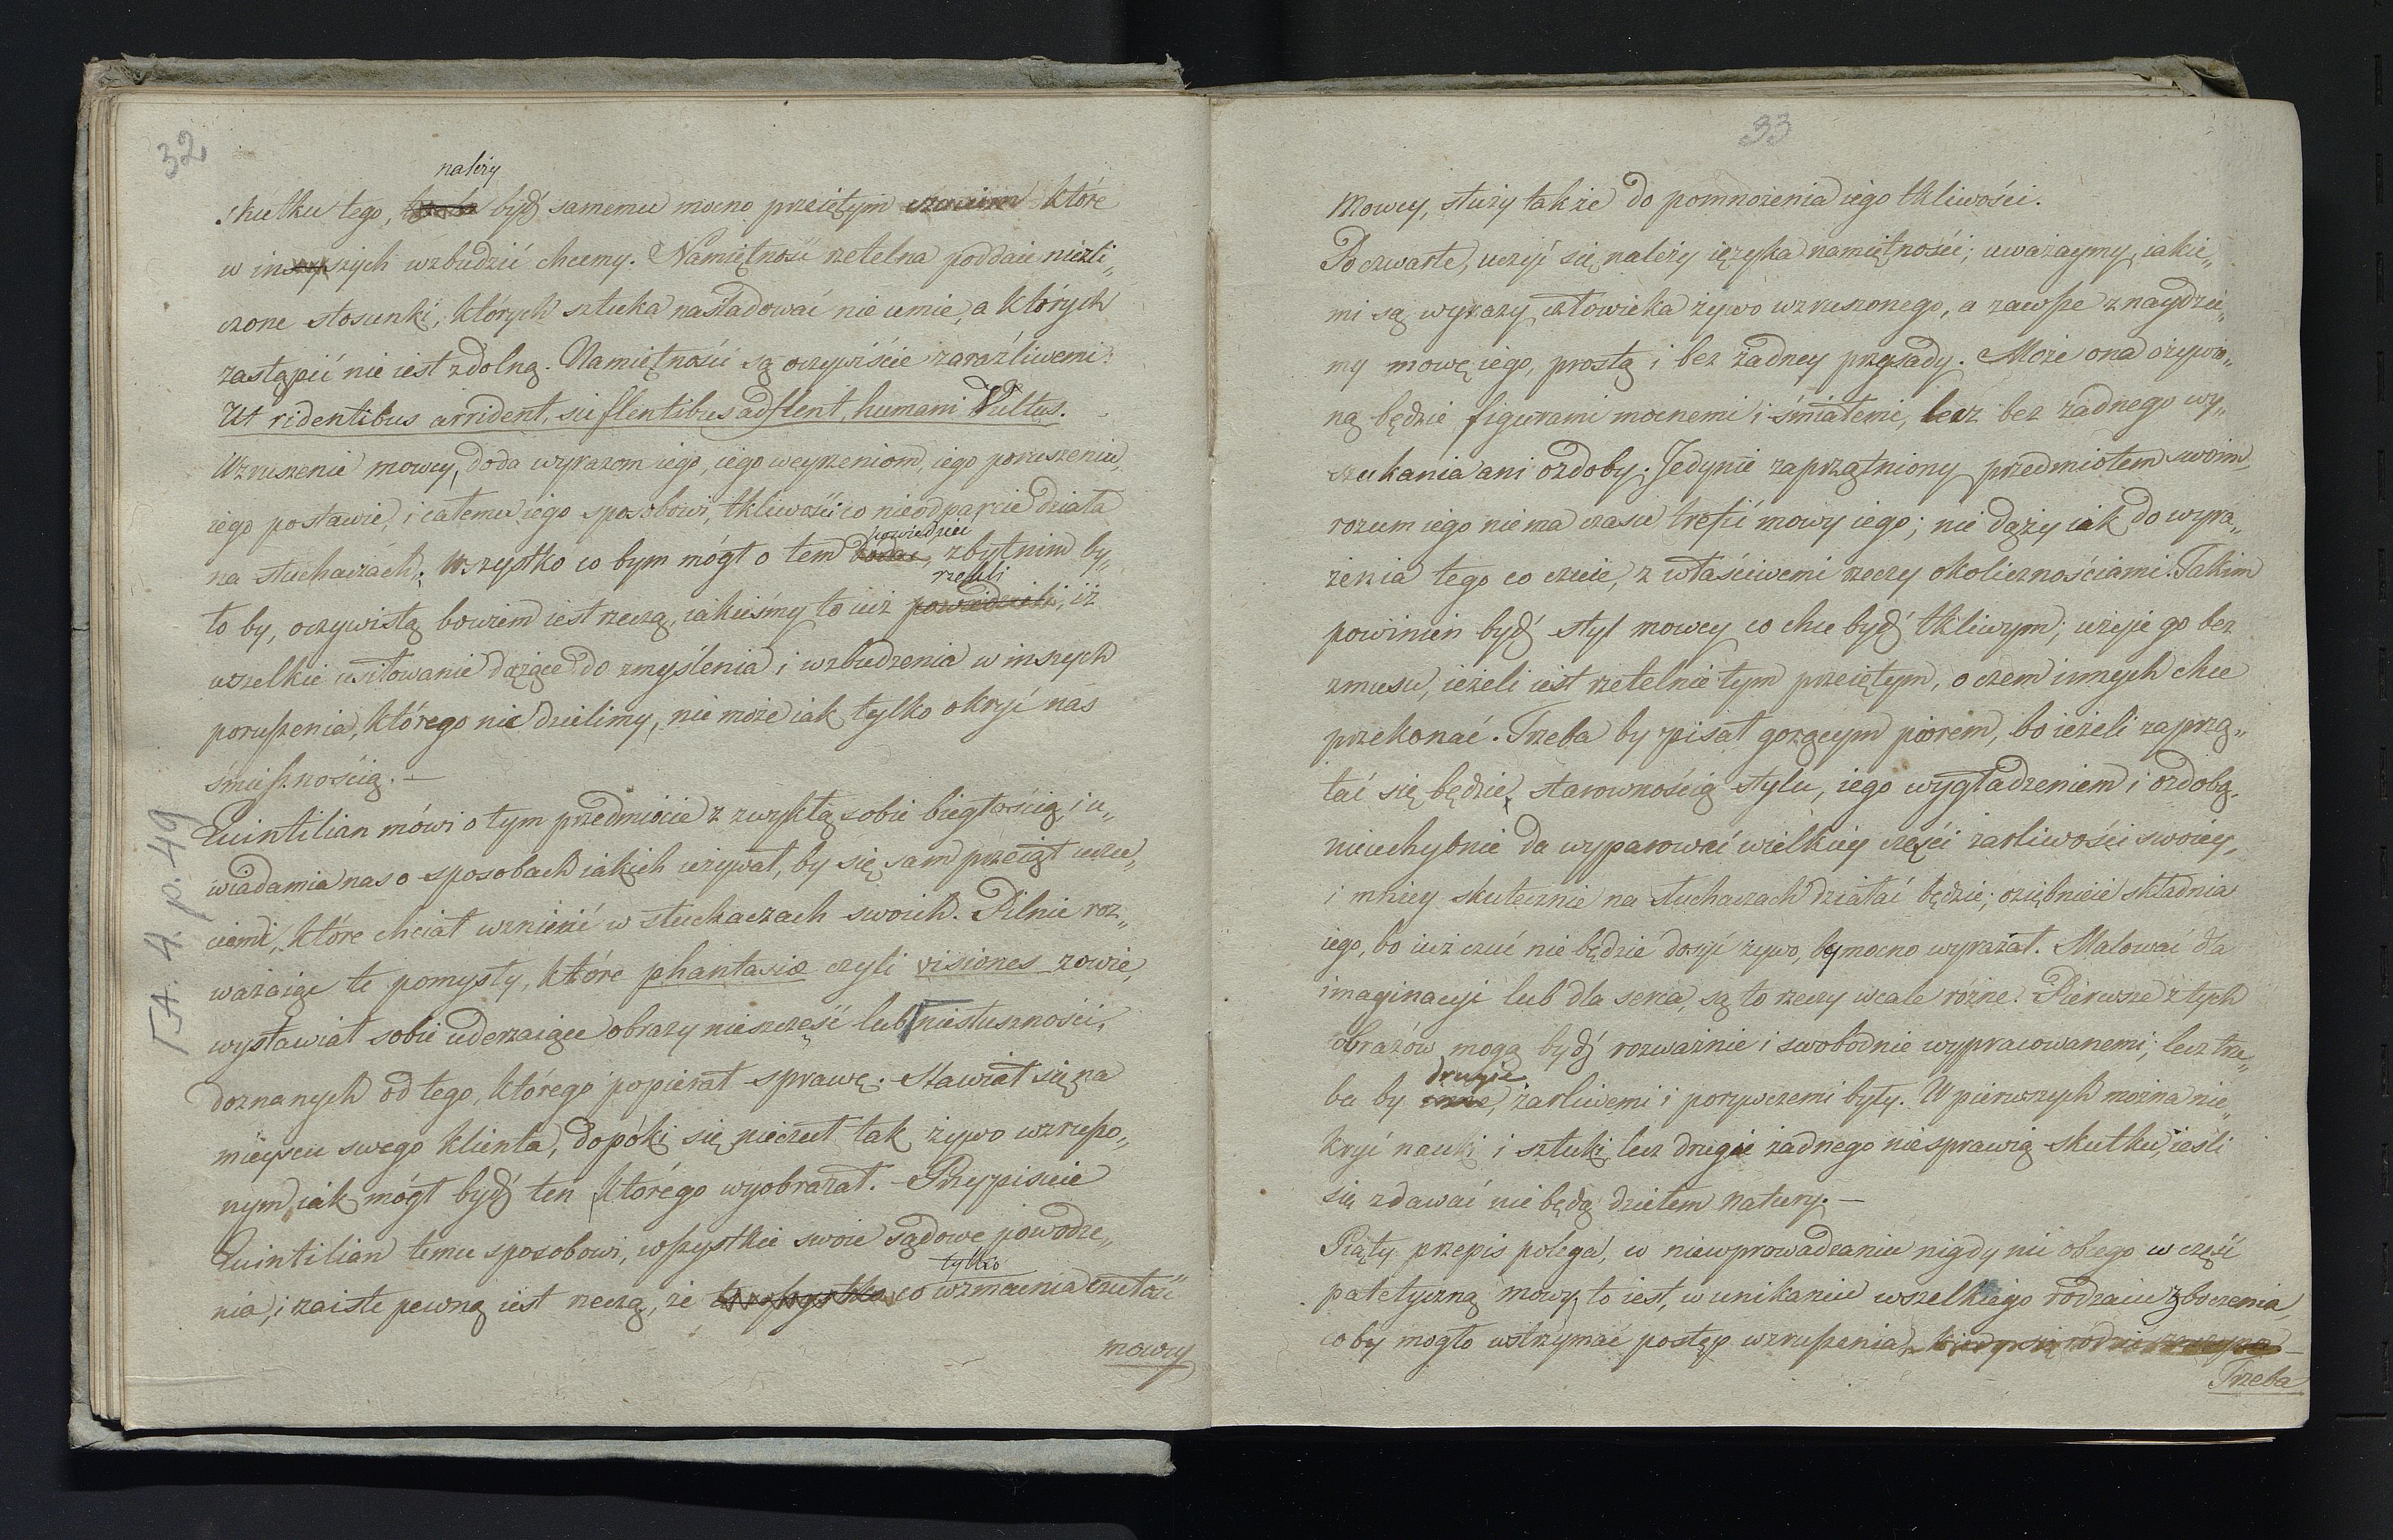 32
należy
skutku tego, bydź samemu mocno przeiętym czuciem które
w inszych wzbudzić chcemy. Namiętność rzetelna poddaie niezli„
czone stosunki, których sztuka naśladować nie umie, a których
zastąpić nie iest zdolną. Namiętności są oczywiście zaraźliwemi:
Ut ridentibus arrident, sic flentibus adflent, humani Vultus.
Wzruszenie mowcy, doda wyrazom iego, iego weyrzeniom, iego poruszeniu,
iego postawie, i całemu iego sposobowi, tkliwości co nieodparcie działa
na słuchaczach; Wszystko co bym mógł o tem dodać, zbytnim by„
powiedzieć
to by, oczywistą bowiem iest rzeczą, iakieśmy to iuż powiedzieli, iż
rzekli
wszelkie usiłowanie dążące do zmyślenia i wzbudzenia w inszych
poruszenia, którego nie dzielimy, nie może iak tylko okryć nas
śmiesznością. —
Quintilian mówi o tym przedmiocie z zwykłą sobie biegłością, i u„
wiadamia nas o sposobach iakich używał, by się sam przeiął uczu„
ciemi, które chciał wzniecić w słuchaczach swoich. Pilnie roz„
ważaiąc te pomysły, które phantasiæ czyli visiones zowie,
wystawiał sobie uderzaiące obrazy nieszczęść lub niesłuszności,
doznanych od tego, którego popierał sprawę. Stawiał się na
mieyscu swego klienta, dopóki się nie czuł tak żywo wzruszo„
nym, iak mógł bydź ten którego wyobrażał. — Przypisuie
Quintilian temu sposobowi, wszystkie swoie sądowe powodze„
nia, i zaiste pewną iest rzeczą, że wszystko co wzmacnia czułość
tylko
mowcy
[A. 4. p. 49
33
Mowcy, służy także do pomnożenia iego tkliwości.
Po czwarte, uczyć się należy ięzyka namiętności; uważaymy, iakie„
mi są wyrazy człowieka żywo wzruszonego, a zawsze znaydzie„
my mowę iego, prostą i bez żadney przysady. Może ona ożywio„
ną będzie figurami mocnemi i śmiałemi, lecz bez żadnego wy„
szukania ani ozdoby. Jedynie zaprzątniony przedmiotem swoim,
rozum iego nie ma czasu treścić mowy iego; nie dąży iak do wyra„
żenia tego co czuie, z właściwemi rzeczy okolicznościami. Takim
powinien bydź styl mowcy co chce bydź tkliwym; użyie go bez
zmusu, ieżeli iest rzetelnie tym przeiętym, o czem innych chce
przekonać. Trzeba by pisał gorącym piórem, bo ieżeli zaprzą„
tać się będzie, starownością stylu, iego wygładzeniem i ozdobą,
nieuchybnie da wyparować wielkiey części żarliwości swoiey,
i mniey skutecznie na słuchaczach działać będzie; oziębnieie składnia
iego, bo iuż czuć nie będzie dosyć żywo, by mocno wyrażał. Malować dla
imaginacyi lub dla serca, są to rzeczy wcale różne. Pierwsze z tych
obrazów mogą bydź rozważnie i swobodnie wypracowanemi; lecz trze„
ba by drugie, żarliwemi i porywczemi były. W pierwszych można nie„
kryć nauki i sztuki, lecz drugie żadnego nie sprawią skutku, ieśli
się zdawać nie będą dziełem Natury. —
Piąty przepis polega, w niewprowadzaniu nigdy nic obcego w część
patetyczną mowy, to iest, w unikaniu wszelkiego rodzaiu zboczenia,
co by mogło wstrzymać postęp wzruszenia, kiedy się rodzić zaczyna —
Trzeba